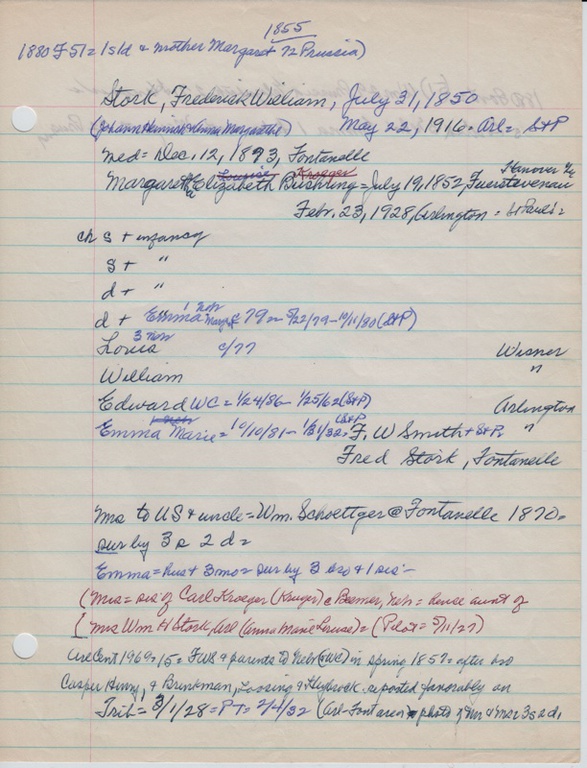 1855
1880 F 51 = 1 s 1 d & mother Margaret 72 Prussia)
Stork, Frederick William, July 31, 1850
(Johann Heinrich & Anna Margarethe) May 22, 1916. Arl = St P
med = Dec. 12, 1873, Fontanelle
Louise Kroeger Hanover
Margaretha Elizabeth Bushring = July 19, 1852, Fuerstevenau
Febr. 23, 1928, Arlington = St Paul's =
ch s + infancy
s + "
d + "
d + Emma Margar 79 = 5/22/79 - 10/11/80 (St P)
3 mos
Louis c/77 Wisner
William "
Edward WC = 1/24/86 - 1/25/62 (St P) Arlington
Emma Marie = 10/10/81 - 1/31/32 = F. W Smith + St P. "
(St P
Fred Stork, Fontanelle
Mrs to US & uncle = Wm. Schoettger @ Fontanelle 1870 =
sur by 3 s 2 d =
Emma = hus + 3 mo = sur by 3 bro + 1 sis: -
(Mrs = sis of Carl Kroeger (Kruger) @ Beemer, Neb = hence aunt of
Mrs Wm H Stork, Arl (Anna Marie Louise) = (Pilot = 5/11/27)
ArlCent 1969 = 15 = FWS & parents to Neb in spring 1857 = after bro
Casper Henry, & Brinkman, Lossing & Heybrock reported favorably on
Trib = 3/1/28 = PT = 2/4/32 (Arl-Fontanarea = photo of Mr & Mrs & 3 s 2 d,